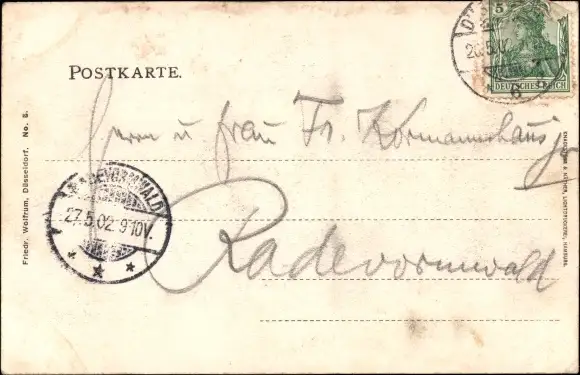 POSTKARTE.
5
DEUTSCHES REICH
26.5.02
Herrn u Frau Fr. Kormannshaus jr
Radevormwald
RADEVORMWALD
27.5.02. 9-10V.
Friedr. Wolfrum, Düsseldorf, No. 8.